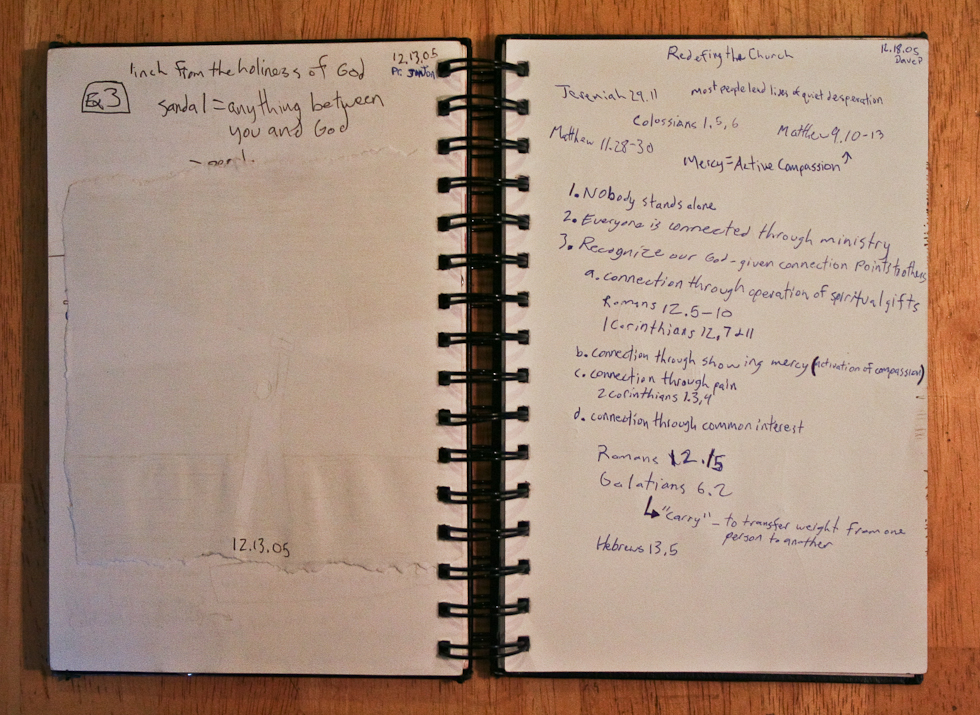 1 inch from the holiness of God
12.13.05
Ex. 3
sandal = anything between
you and God
12.13.05
Redefing the Church
12.18.05
Dave P
Jeremiah 29.11
most people lead lives of quiet desperation
Colossians 1.5,6
Matthew 9.10-13
Matthew 11.28-30
Mercy = Active Compassion
1. Nobody stands alone
2. Everyone is connected through ministry
3. Recognize our God-given connection points to others
a. connection through operation of spiritual gifts
Romans 12.5-10
1 Corinthians 12,7+11
b. connection through showing mercy (activation of compassion)
c. connection through pain
2 Corinthians 1.3,4
d. connection through common interest
Romans 12.15
Galatians 6.2
"carry" - to transfer weight from one
person to another
Hebrews 13.5